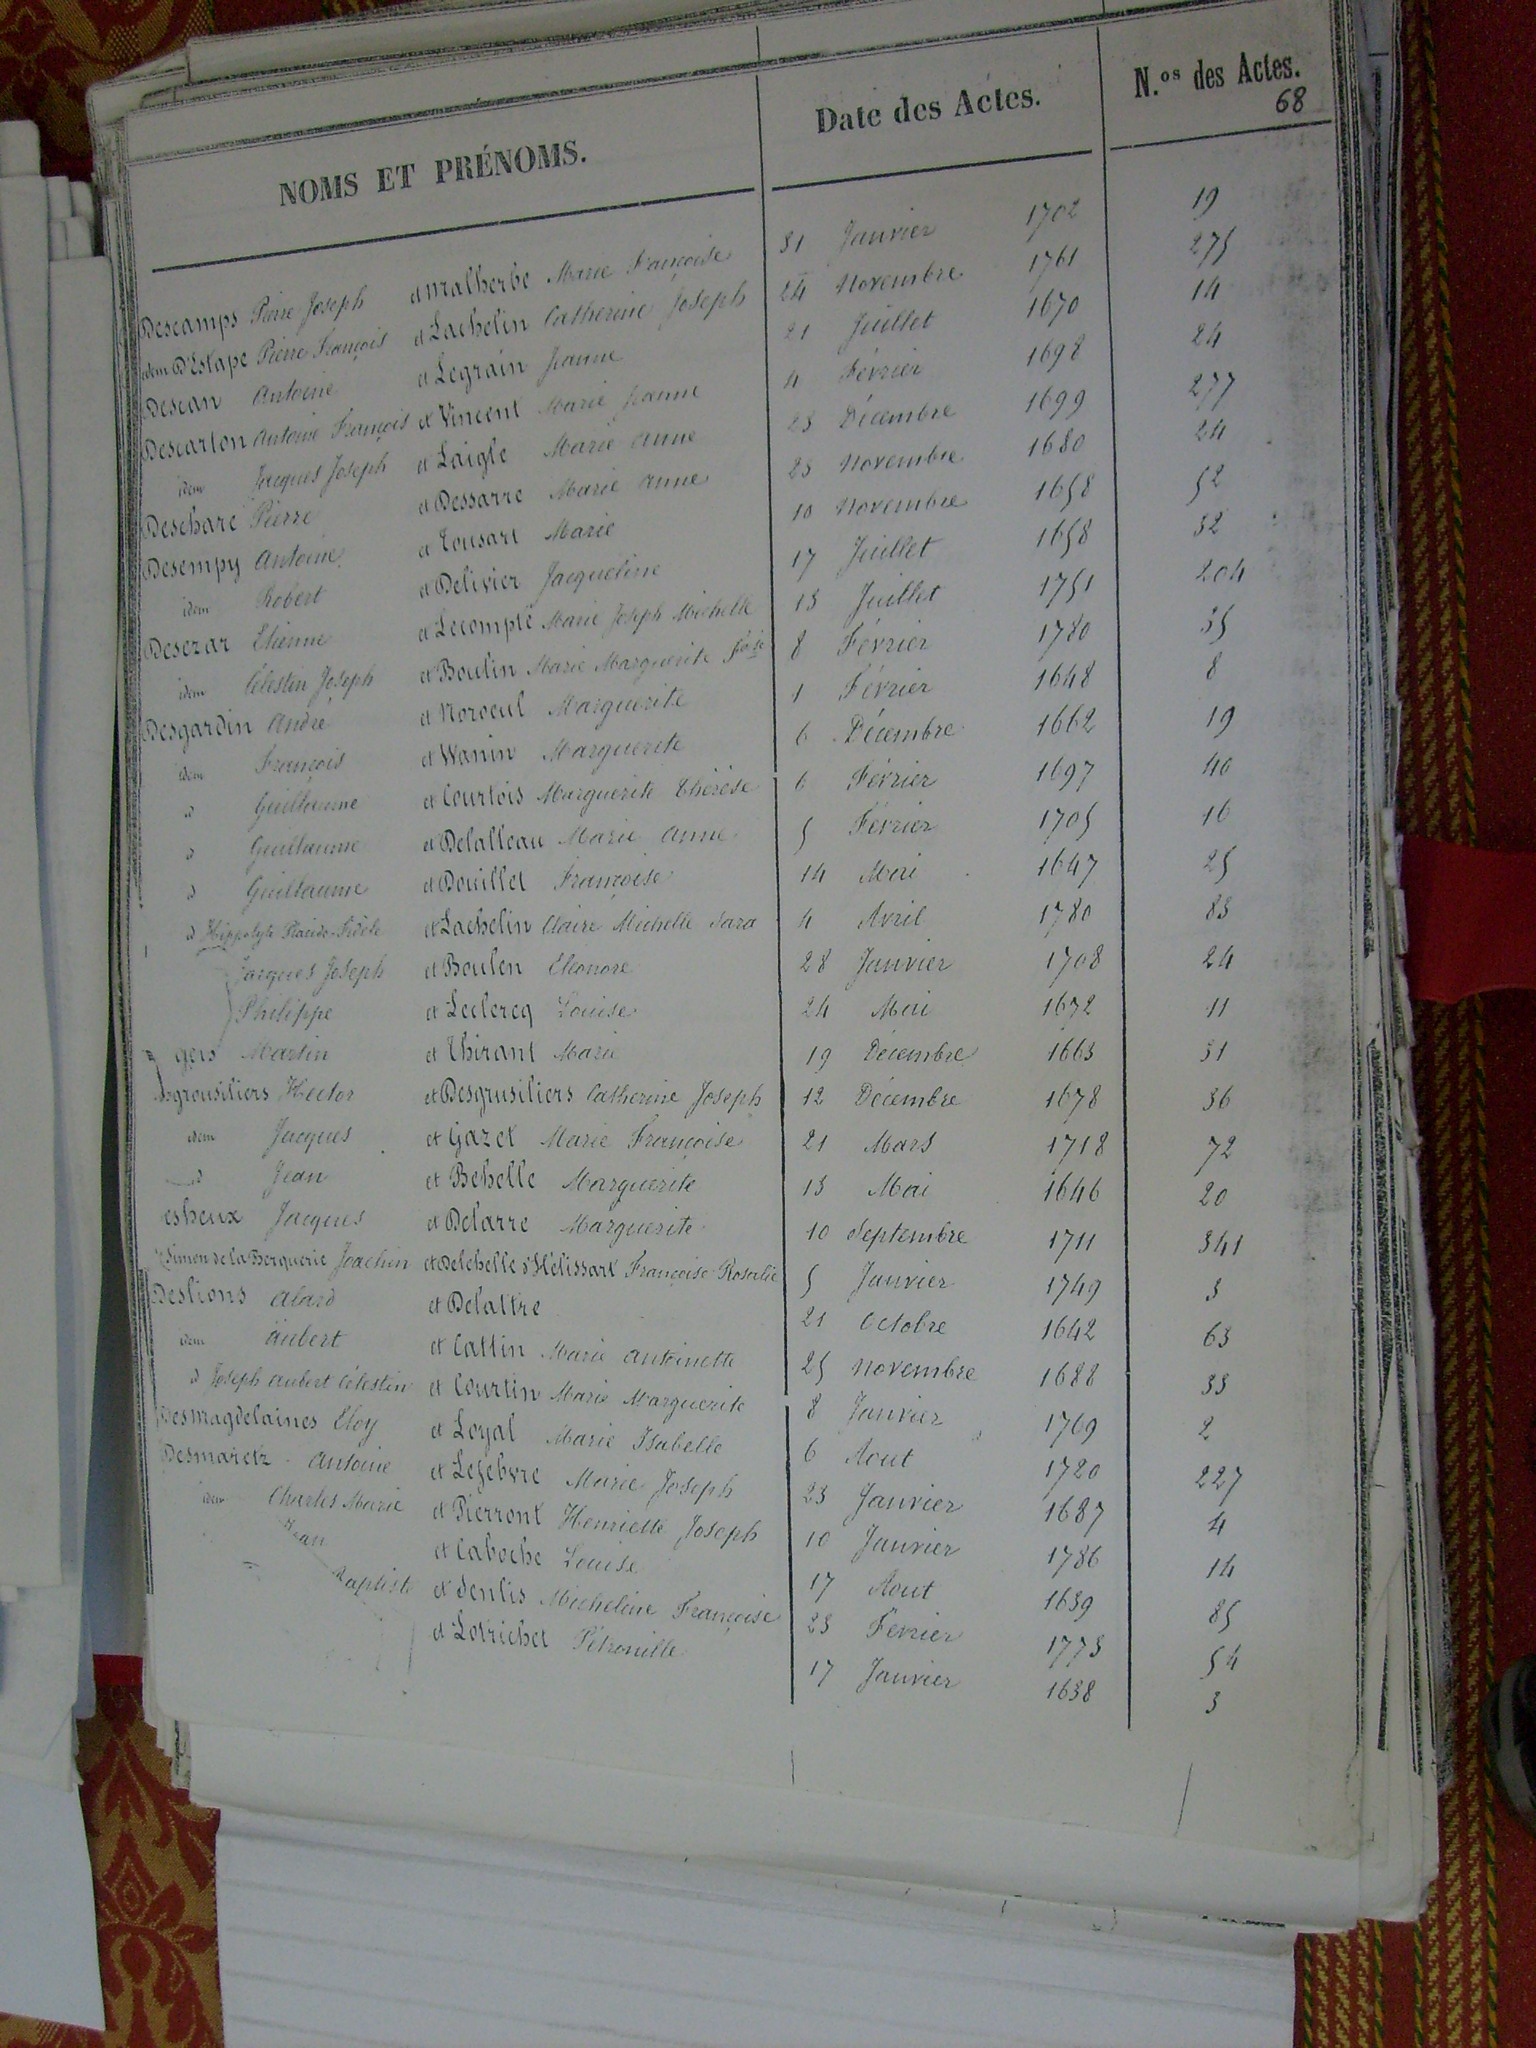 NOMS ET PRÉNOMS. Date des Actes. N.os des Actes.
68
Descamps Pierre Joseph et Malherbe Marie Françoise 31 Janvier 1702 19
idem D'Estape Pierre François et Lachelin Catherine Joseph 24 Novembre 1761 275
Descan Antoine et Legrain Jeanne 21 Juillet 1670 14
Descarton Antoine François et Vincent Marie Jeanne 4 Février 1698 24
idem Jacques Joseph et Laigle Marie Anne 23 Décembre 1699 277
Descharé Pierre et Dessarre Marie Anne 23 Novembre 1680 24
Desempy Antoine et Tousart Marie 10 Novembre 1658 52
idem Robert et Delivier Jacqueline 17 Juillet 1658 32
Desezar Etienne et Lecompte Marie Joseph Michelle 13 Juillet 1751 204
idem Célestin Joseph et Boulin Marie Marguerite Fçoise 8 Février 1780 35
Desgardin André et Noroeul Marguerite 1 Février 1648 8
idem François et Wanin Marguerite 6 Décembre 1662 19
d Guillaume et Courtois Marguerite Thérèse 6 Février 1697 40
d Guillaume et Delalleau Marie Anne 5 Février 1705 16
d Guillaume et Douillet Françoise 14 Mai 1647 25
d Hippolyte Placide Fidèle et Lachelin Claire Michelle Sara 4 Avril 1780 83
Jacques Joseph et Boulen Eléonore 28 Janvier 1708 24
Philippe et Leclercq Louise 24 Mai 1672 11
geis Martin et Thirant Marie 19 Décembre 1663 31
sgrousiliers Hector et Desgrusiliers Catherine Joseph 12 Décembre 1678 36
idem Jacques et Gazet Marie Françoise 21 Mars 1718 72
d Jean et Behelle Marguerite 13 Mai 1646 20
esheux Jacques et Delarre Marguerite 10 Septembre 1711 341
Simon de la Berquerie Joachin et Delehelle d'Hélissart Françoise Rosalie 5 Janvier 1749 3
Deslions Alard et Delattre 21 Octobre 1642 63
idem Aubert et Cattin Marie Antoinette 25 Novembre 1688 33
d Joseph Aubert Célestin et Courtin Marie Marguerite 8 Janvier 1769 2
Desmagdelaines Eloy et Loyal Marie Isabelle 6 Aout 1720 227
Desmaretz Antoine et Lefebvre Marie Joseph 23 Janvier 1687 4
idem Charles Marie et Pierront Henriette Joseph 10 Janvier 1786 14
Jean et Caboche Louise 17 Aout 1639 85
Baptiste et Senlis Micheline Françoise 23 Février 1773 54
et Lotrichet Pétronille 17 Janvier 1638 3